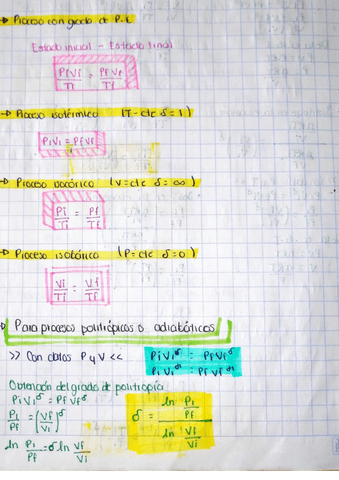 → Proceso con grado de P.
Estado inicial - Estado final
PfVf / Ti = PfVf / Tf
→ Proceso isotérmico (T-ctc δ=1)
PiVi = PfVf
→ Proceso isocórico (V=ctc δ=∞)
Pi / Ti = Pf / Tf
→ Proceso isobárico (P=ctc δ=0)
Vi / Ti = Vf / Tf
Para procesos politrópicos o adiabáticos
>> Con datos P y V <<
PiVi^δ = PfVf^δ
PiVi^δ = PfVf^δ
Obtención del grado de politropía
PiVi^δ = PfVf^δ
Pi / Pf = (Vf / Vi)^δ
ln Pi / Pf = δ ln Vf / Vi
δ = ln Pi / Pf / ln Vf / Vi